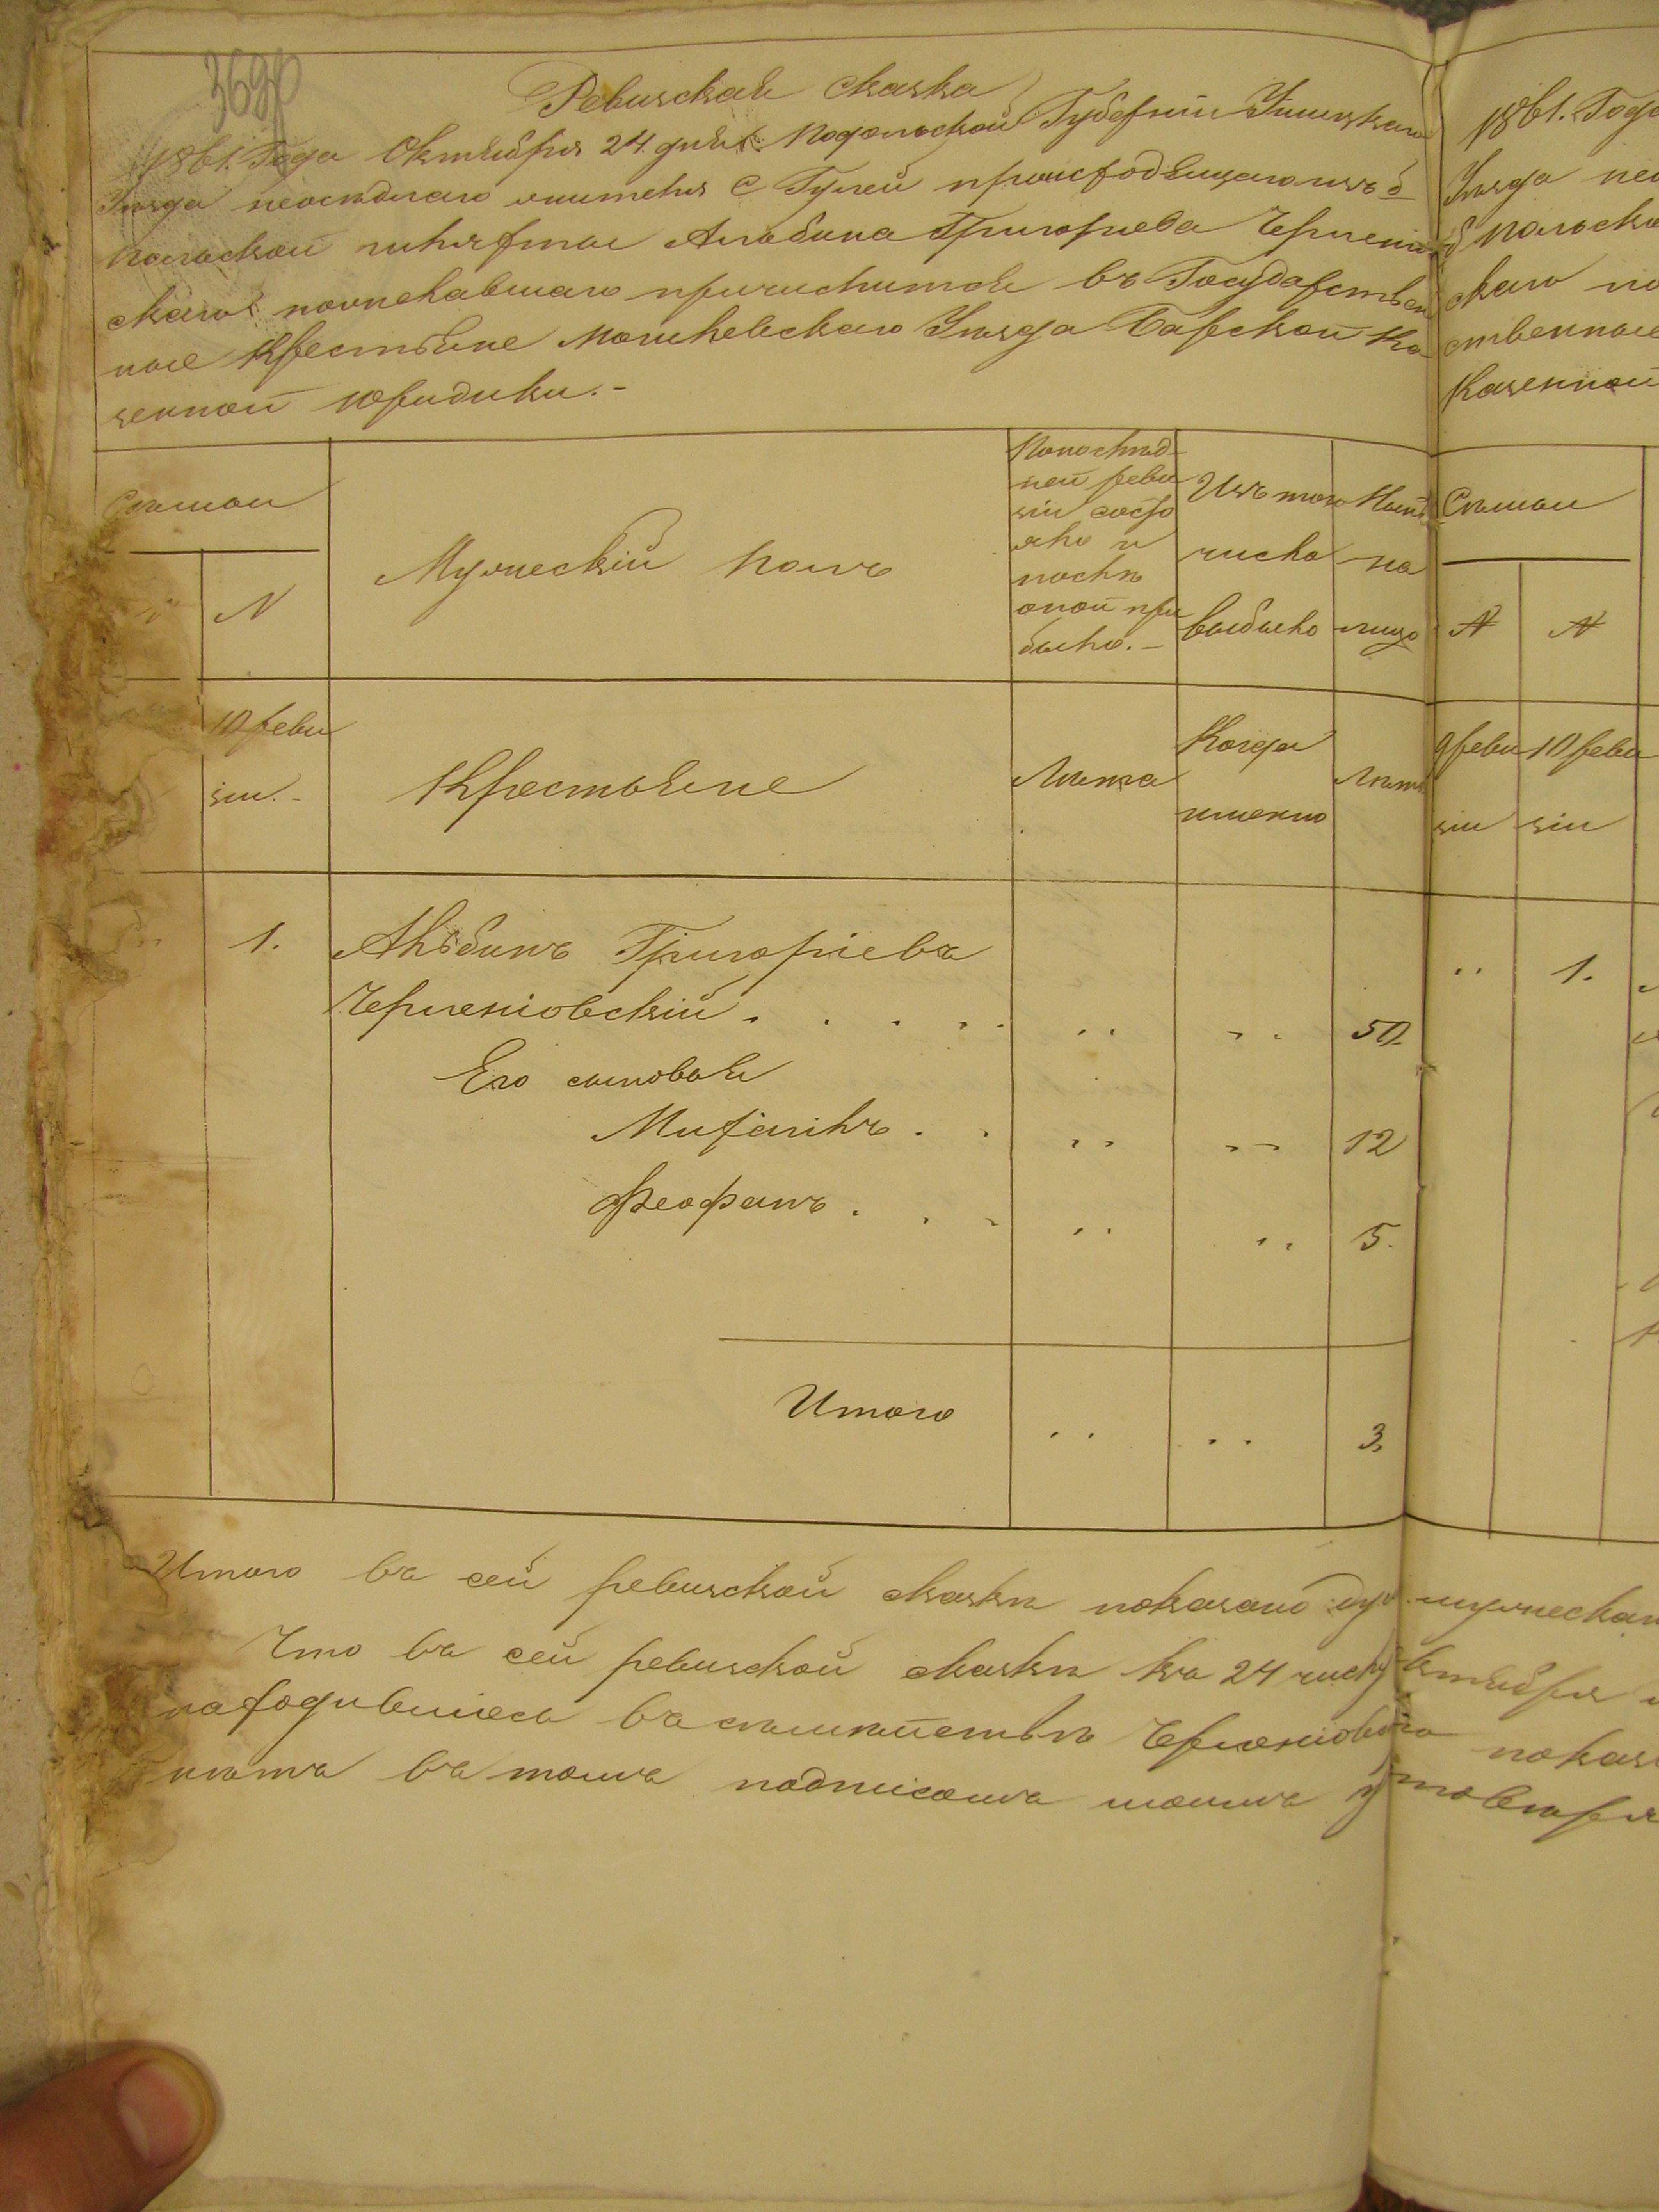 369
Ревизская сказка
1861. Года Октября 24 дня Подольской Губернии Ушицкаго
Уезда неоседлаго жителя С Гулей происходящаго изъ б
польской шляхты Альбина Григориева Черлению
скаго пожелавшаго причислится въ Государствен
ные Крестьяне Могилевскаго Уезда Барской Ка
зенной юридики.-
Семьи
Мужескій полъ
По послѣд-
ней реви
зіи состо
яло и
послѣ
оной при
было.-
Изъ того
числа
выбыло
Нынѣ
на
лицо
N
10 реви
зіи.-
Крестьяне
Лѣта
Когда
именно
Лѣта
1. Альбинъ Григоріевъ
Черленіовскій . . . . . 50.
Его сыновья
Михаилъ . . 12
Феофанъ . . . 5.
Итого 3.
Итого въ сей ревизской сказкѣ показано душ мужеска
Что въ сей ревизской сказкѣ къ 24 числу Октября
находившіеся въ семействѣ Черленіов показ
нѣтъ въ томъ подписомъ моимъ утоверя
1861. Года
Уезда нео
б польско
скаго по
ственные
Казенной
Семьи
N N
9 реви 10 реви
зіи зіи
1.